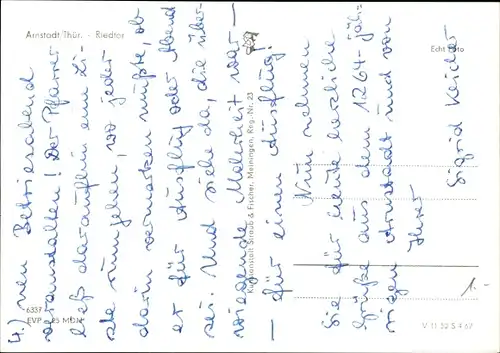 Arnstadt/Thür. - Riedtor
Echt Foto
4.) nen Betriebsabend
veranstalten! Der Pfarrer
ließ daraufhin eine Li-
ste rumgehen, wo jeder
darin vermerken mußte, ob
er für Ausflug oder Abend
sei. Und siehe da, die über-
wiegende Mehrheit war —
— für einen Ausflug!
Nun nehmen
Sie für heute herzliche
Grüße aus dem 1264-jäh-
rigen Arnstadt und von
Ihrer
Sigrid
Kunstanstalt Straub & Fischer, Meiningen, Reg.-Nr. 23
6337
EVP = 25 MDN
1.-
V 11 32 S 4 67